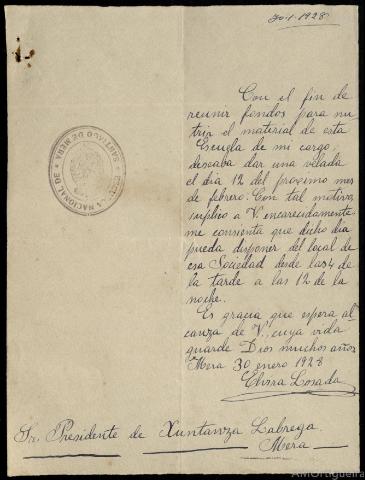 30-1-1928
Con el fin de
reunir fondos para nu
trir el material de esta
Escuela de mi cargo,
deseaba dar una velada
el dia 12 del proximo mes
de febrero. Con tal motivo,
suplico a V. encarecidamente
me consienta que dicho dia
pueda disponer del local de
esa Sociedad desde las 4 de
la tarde a las 12 de la
noche.
Es gracia que espera al
canza de V., cuya vida
guarde Dios muchos años
Mera 30 enero 1928
Elvira Losada
Sr. Presidente de Xuntanza Labrega
Mera
NACIONAL DE
SANTIAGO DE MERA
AMOrtigueira